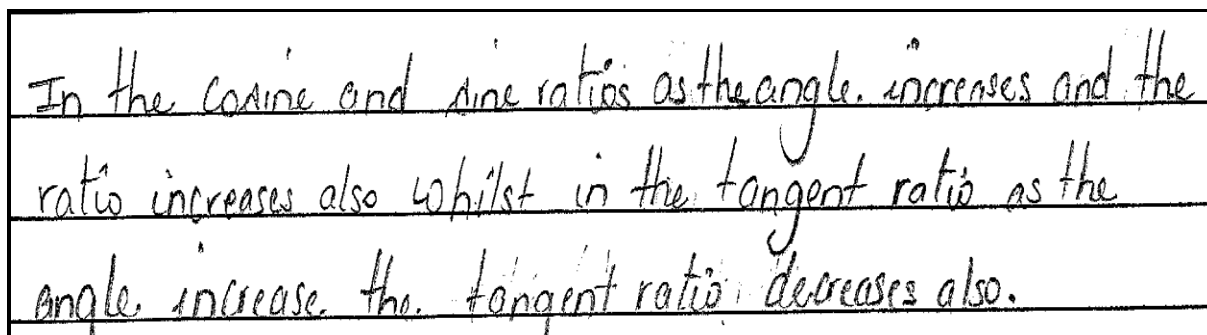 In the cosine and sine ratios as the angle increases and the
ratio increases also whilst in the tangent ratio as the
angle increase the tangent ratio decreases also.